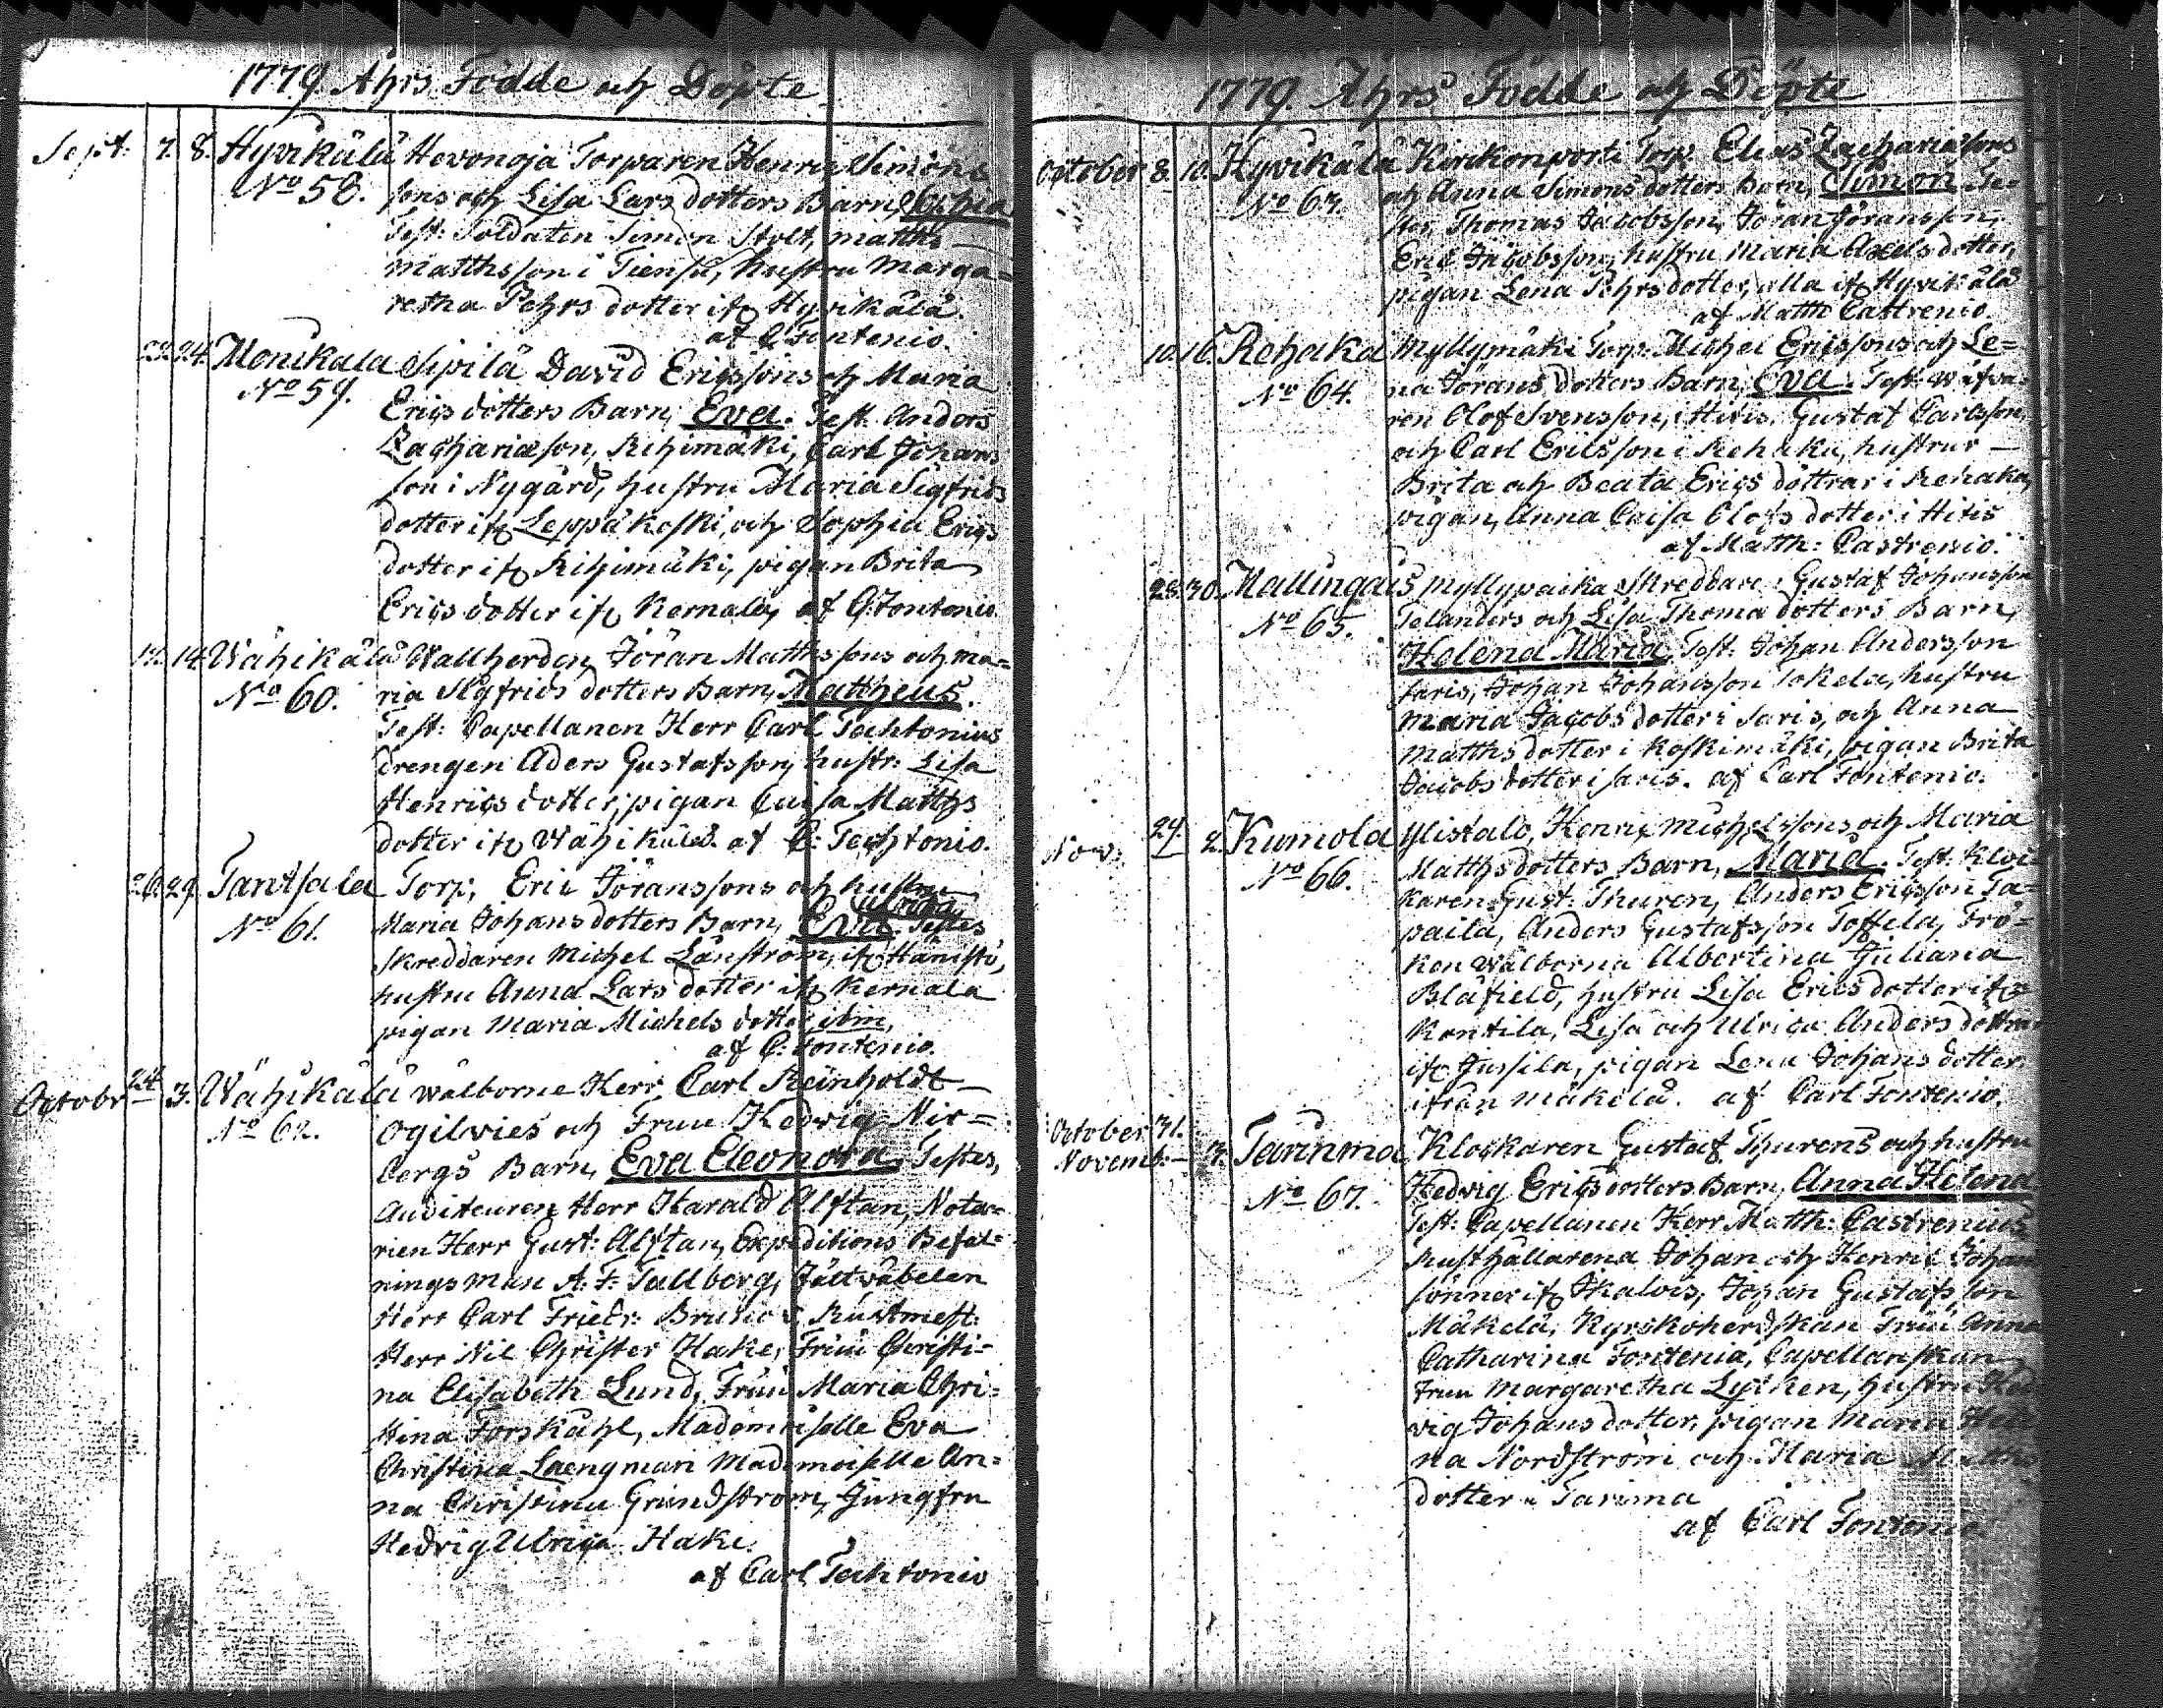 1779 Åhrs Födde och Döpte
Sept: 7. 8. Hyvikälä Hevonoja Torparen Henric Simons
No 58. sons och Lisa Lars dotters Barn, Sophia
Test: Soldaten Simon Stolt, Matths
Matthsson i Tiensu, hustru Marga=
retha Pehrs dotter ifr Hyvikälä.
af C Fontenio.
24. Monikala Sipilä David Ericssons och Maria
No 59. Erics dotters Barn, Eva. Test. Anders
Zachariæson, Rihimäki, Carl Johans
son i Nygård, hustru Maria Sigfrids
dotter ifr Leppäkoski, och Sophia Erics
dotter ifr Rihimäki, pigan Brita
Erics dotter ifr Kernala, af C: Fontenio
14. Wähikälä Wallherden Jöran Matthssons och Ma=
No 60. ria Sigfrids dotters Barn, Mattheus.
Test: Capellanen Herr Carl Techtonius
drengen Aders Gustafsson, hustr: Lisa
Henrics dotter, pigan Caisa Matths
dotter ifr Wähikälä. af C: Techtonio.
26. 29. Tantsala Torp, Eric Jöranssons och hustru
No 61. Maria Johans dotters Barn, Eva Ulrica Testes
Skreddaren Michel Länström, ifr Hänistö,
hustru Anna Lars dotter ifr Kernala
pigan Maria Michels dotter ibm,
af C: Fontenio.
Octobr 24 3. Wähikälä Wälborne Herr Carl Reinholdt
No 62. Ogilvies och Fruu Hedvig Nir=
bergs Barn, Eva Eleonora. Testes,
Auditeuren Herr Harald Alftan, Nota=
rien Herr Gust: Alftan, Expeditions Befal=
nings man A: F: Tallberg, Fältväbelen
Herr Carl Friedr: Brusius, Rustmest:
Herr Nil Christer Hake, Fruu Christi=
na Elisabeth Lund, Fruu Maria Chri=
stina Forskåhl, Mademoiselle Eva
Christina Laengman Mademoiselle An=
na Christina Grundström, Jungfru
Hedvig Ulrica Hake.
af Carl Techtonio
1779. Åhrs Födde och Döpte
October 8. 10. Hyvikälä Kirckonporti Torp: Elias Zachariæsons
No 63. och Anna Simons dotters Barn, Simon Te=
stes, Thomas Jacobsson, Jöran Göransson,
Eric Jacobsson, hustru Maria Axelsdotter,
pigan Lena Pehrs dotter, alla ifr Hyvikälä
af Matth Castrenio.
10. 16. Rehaka Myllymäki Torp: Michel Ericssons och Le=
No 64. na Jörans dotters Barn, Eva. Test:
ren Olof Svensson, i Hitis. Gustaf Carlsson,
och Carl Ericsson i Rehaka, hustrur
Brita och Beata Erics döttrar i Rehaka,
pigan, Anna Caisa Olofs dotter i Hitis
af Matth: Castrenio.
28. 30. Mallingais Myllypaika Skreddare Gustaf Johansson
No 65. Telanders och Lisa Thoma dotters Barn,
Helena Maria, Test: Johan Andersson
Saris, Johan Johansson Tokela, hustru
Maria Jacobs dotter i Saris, och Anna
Matths dotter i Koskimäki, pigan Brita
Jacobs dotter i Saris. af Carl Fontenio.
Nov: 29. 2. Kumola Ylistalo, Henric Michelssons och Maria
No 66. Matths dotters Barn, Maria. Test: Kloc
karen Gust: Thuren, Anders Ericsson Ta=
paila, Anders Gustafsson Toffila, Frö=
ken Wälborna Albertina Juliana
Blåfield, hustru Lisa Erics dotter ifr
Kontila, Lisa och Ulrica Anders döttrar
ifr Jussila, pigan Lena Johans dotter
ifrån Mäkelä. af Carl Fontenio.
October 31.
Novemb: 3. Tarinma Klockaren Gustaf Thurens och hustru
No 67. Hedvig Erics dotters Barn, Anna Helena
Test: Capellanen Herr Matth: Castrenius
Rusthållarena Johan och Henric Johans
sönner ifr Ikalois, Johan Gustafsson
Mäkelä, Kyrckoherdskan Fruu Anna
Catharina Fontenia, Capellanskan
Fruu Margaretha Lycken, hustru Hed
vig Johans dotter, pigan Maria
na Nordström och Maria Matths
dotter i Tarinma
af Carl Fontenio.